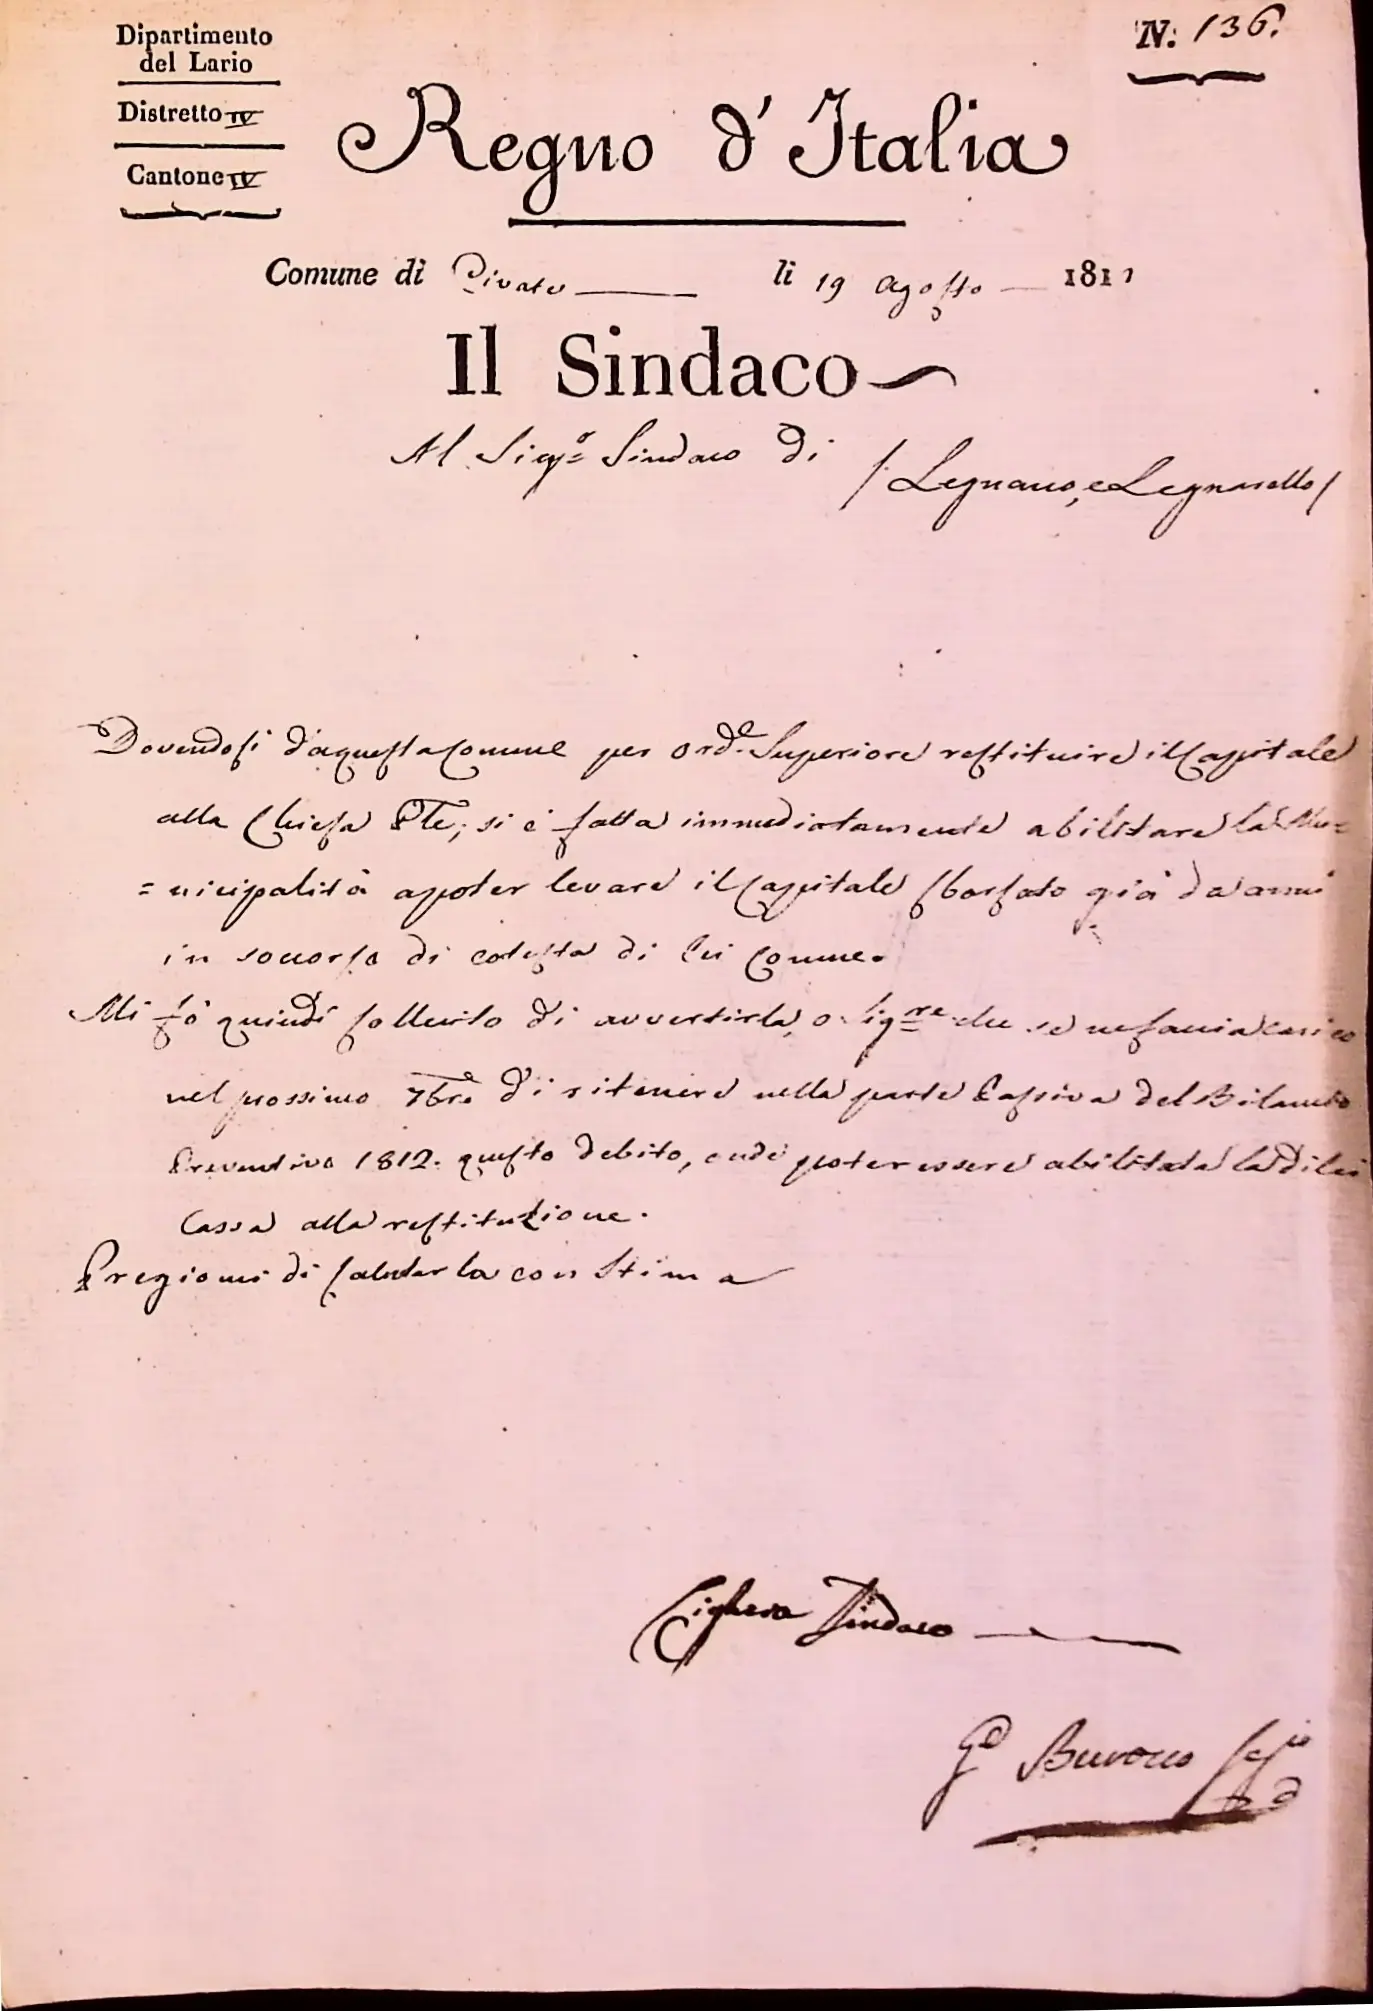 N: 136.
Dipartimento
del Lario
Distretto IV
Cantone IV
Regno d' Italia
Comune di Civate lì 19 Agosto 1811
Il Sindaco
Al Sig.r Sindaco di
/ Legnano, e Legnarello /
Dovendosi d'aquesta Comune per ord.e Superiore restituire il Capitale
alla Chiesa Ple, si è fatta immediatamente abilitare la Mu=
=nicipalità apoter levare il Capitale sborsato già da anni
in soccorso di cotesta di lei Comune.
Mi fò quindi sollecito di avvertirla, o Sig.re che se ne faccia carico
nel prossimo 7bre d'i ritenere nella parte Passiva del Bilancio
Preventivo 1812. questo debito, onde poter essere abilitata la di lei
Cassa alla restituzione.
Pregiomi di salutarla con stima
Sindaco
Seg.io